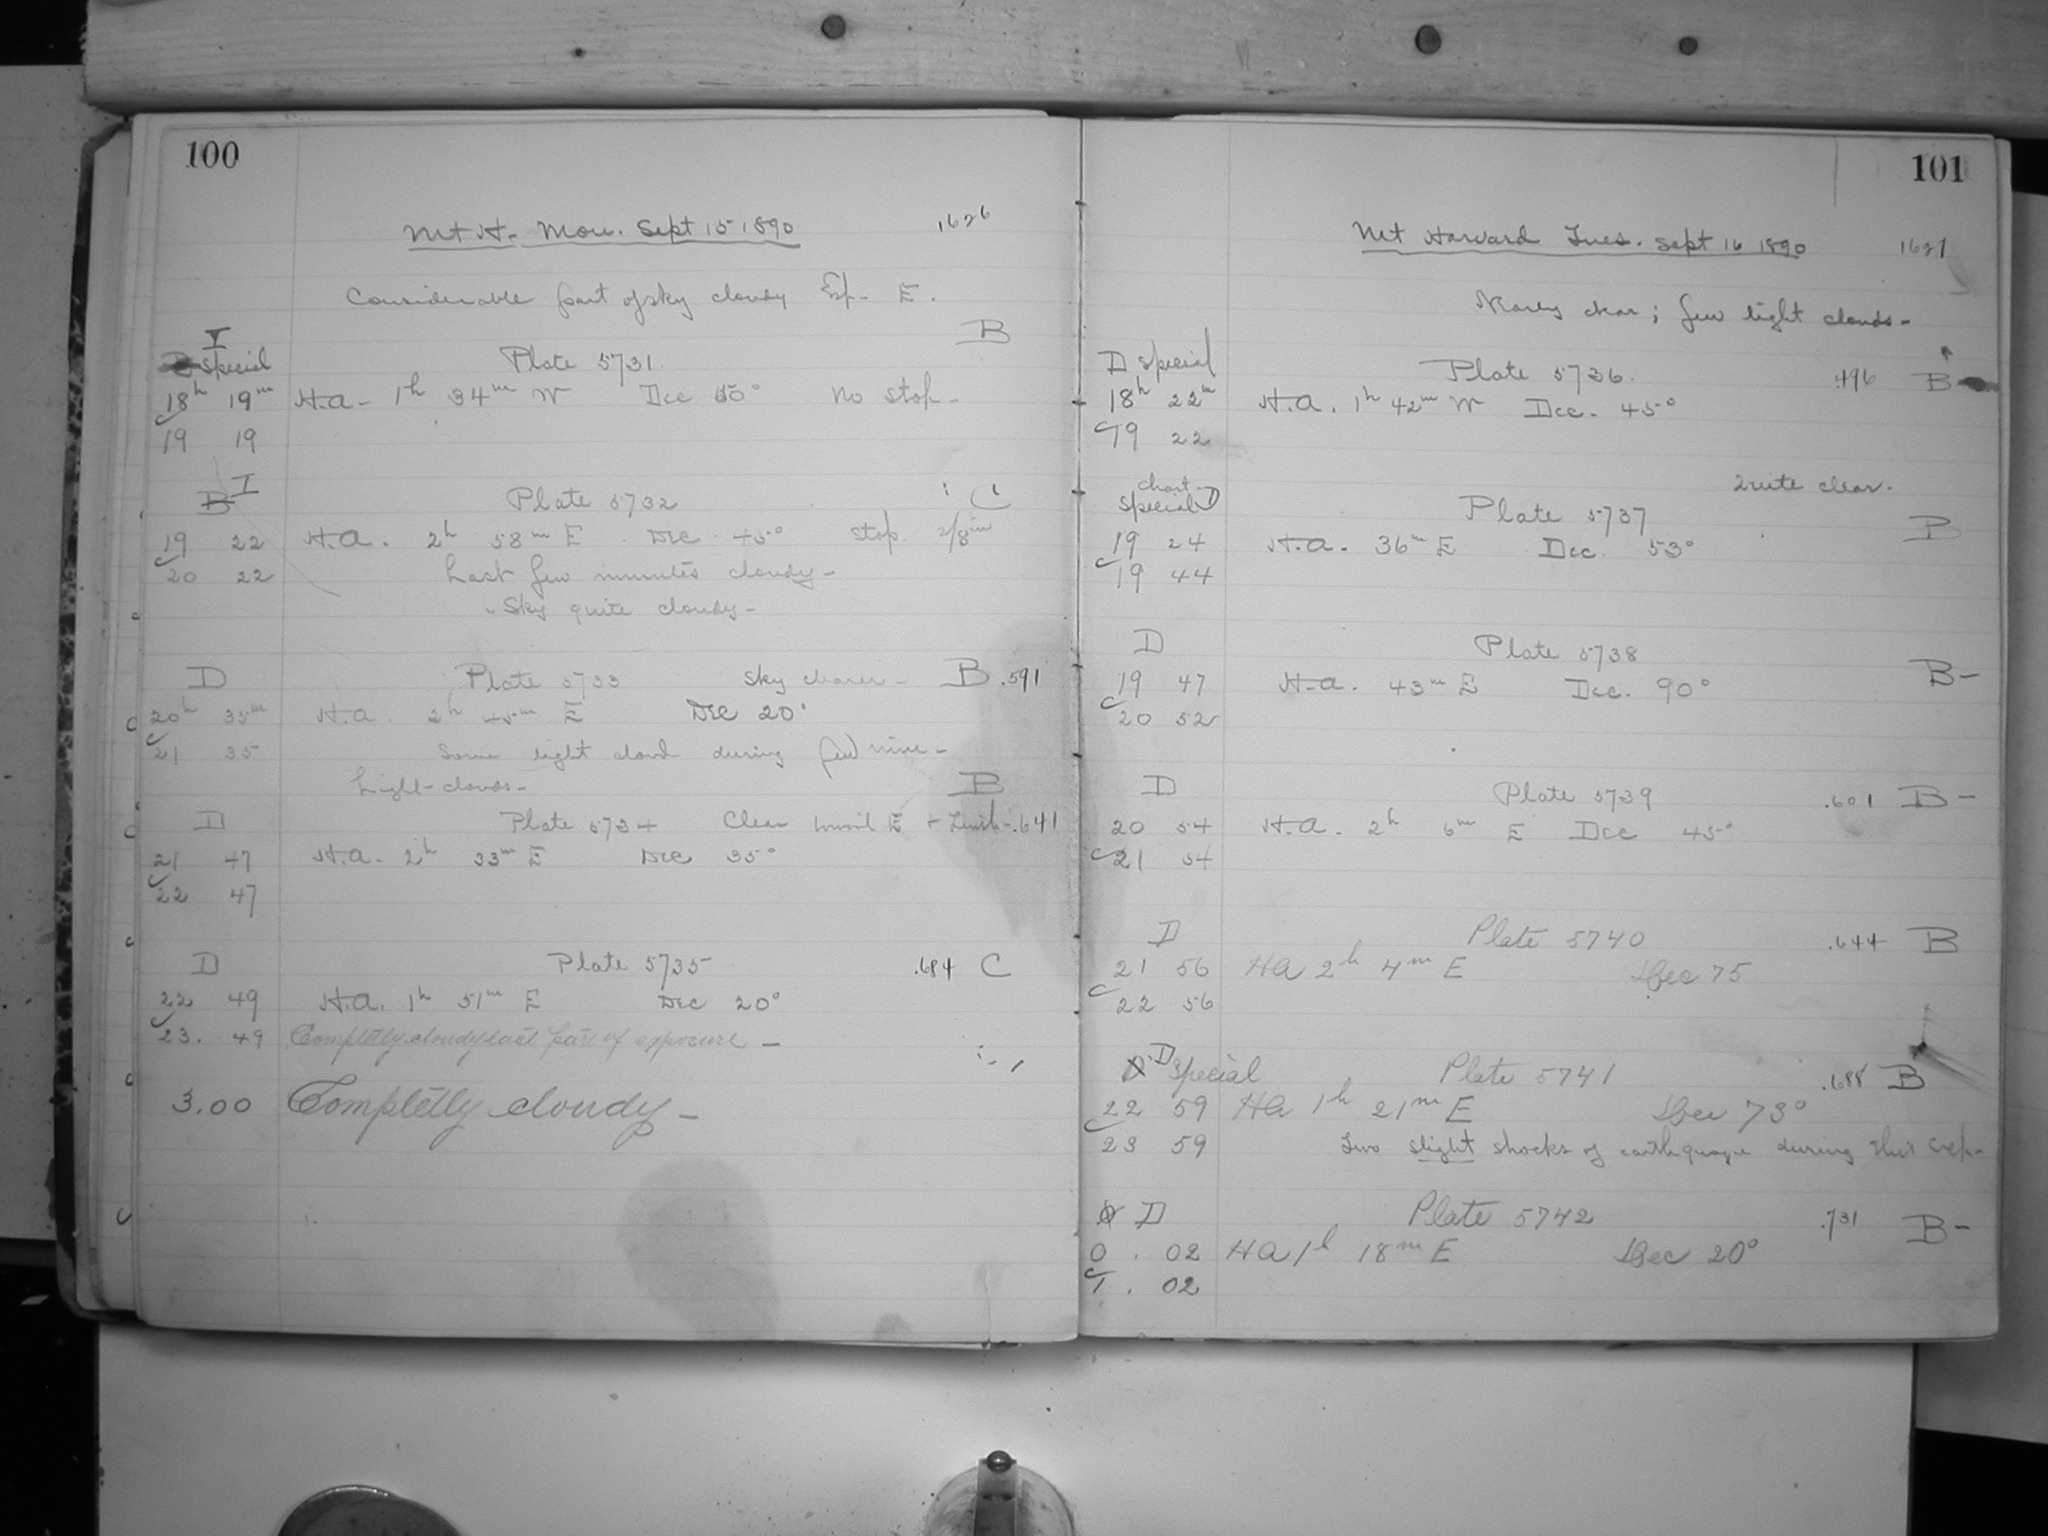 100
Mt H. Mon. Sept 15 1890 1626
Considerable part of sky cloudy Esp. E.
I B
Special Plate 5731
18h 19m H.A. 1h 34m W Dec No stop-
19 19
I
B Plate 5732 C
19 22 H.A. 2h 58m E Dec 45° Stop
20 22 Last few minutes cloudy-
Sky quite cloudy-
D Plate 5733 Sky clearer- B .591
20h 35m H.A. 2h 45m E Dec 20°
21 35 Some light cloud during few min-
Light clouds- B
D Plate 5734 Clear E + Zenith- .641
21 47 H.A. 2h 33m E Dec 35°
22 47
D Plate 5735 .684 C
22 49 H.A. 1h 51m E Dec 20°
23. 49 Completly cloudy last part of exposure-
3.00 Completly cloudy-
101
Mt Harvard Tues. Sept 16 1890 1627
clear; few light clouds-
D Special Plate 5736. .496 B-
18h 22m H.A. 1h 42m W Dec. 45°
19 22
Chart- Quite clear.
Special D Plate 5737 B
19 24 H.A. 36m E Dec. 53°
19 44
D Plate 5738 B-
19 47 H.A. 43m E Dec. 90°
20 52
D Plate 5739 .601 B-
20 54 H.A. 2h 6m E Dec 45°
21 54
D Plate 5740 .644 B
21 56 HA 2h 4m E Dec 75
22 56
D Special Plate 5741 .688 B
22 59 HA 1h 21m E Dec 73°
23 59 Two slight shocks of earthquake during this exp-
D Plate 5742 .731 B-
0 . 02 HA 1h 18m E Dec 20°
1 . 02